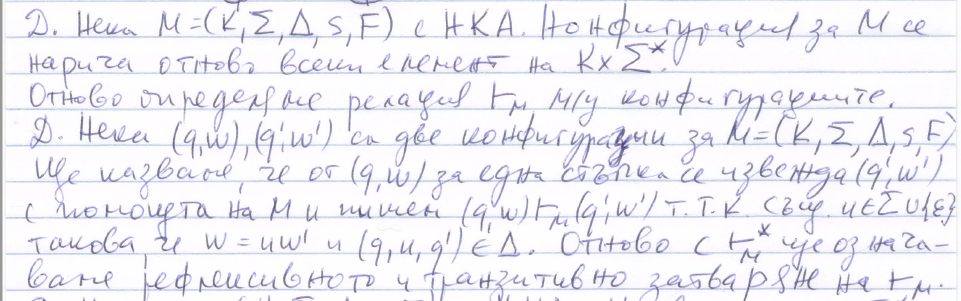 Д. Нека M=(K,Σ,Δ,s,F) е НКА. Конфигурация за M се
нарича отново всеки елемент на K×Σ*.
Отново определяме релация ⊢M м/у конфигурациите.
Д. Нека (q,w),(q',w') са две конфигурации за M=(K,Σ,Δ,s,F)
Ще казваме, че от (q,w) за една стъпка се извежда (q',w')
с помощта на M и пишем (q,w)⊢M(q',w') т.т.к. същ. u∈Σ∪{ε}
такова, че w=uw' и (q,u,q')∈Δ. Отново с ⊢M* ще означа-
ваме рефлексивното и транзитивно затваряне на ⊢M.